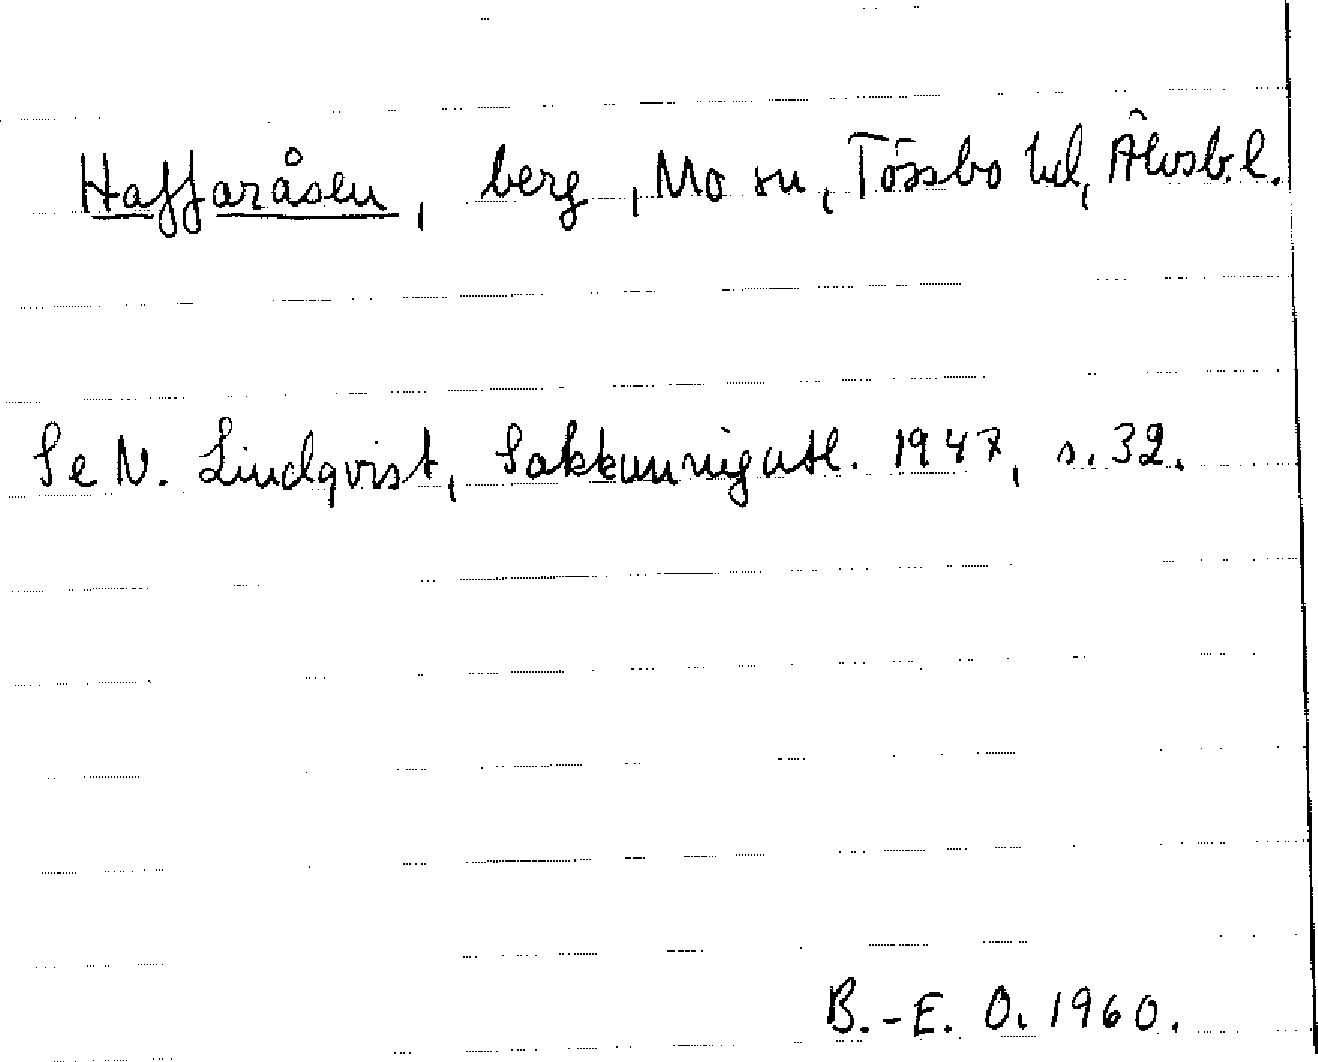 Haffaråsen, berg, Mo sn, Tössbo hd, Älvsb. l.
Se N. Lindqvist, Sakkunnigutl. 1947, s. 32.
B.-E. O. 1960.